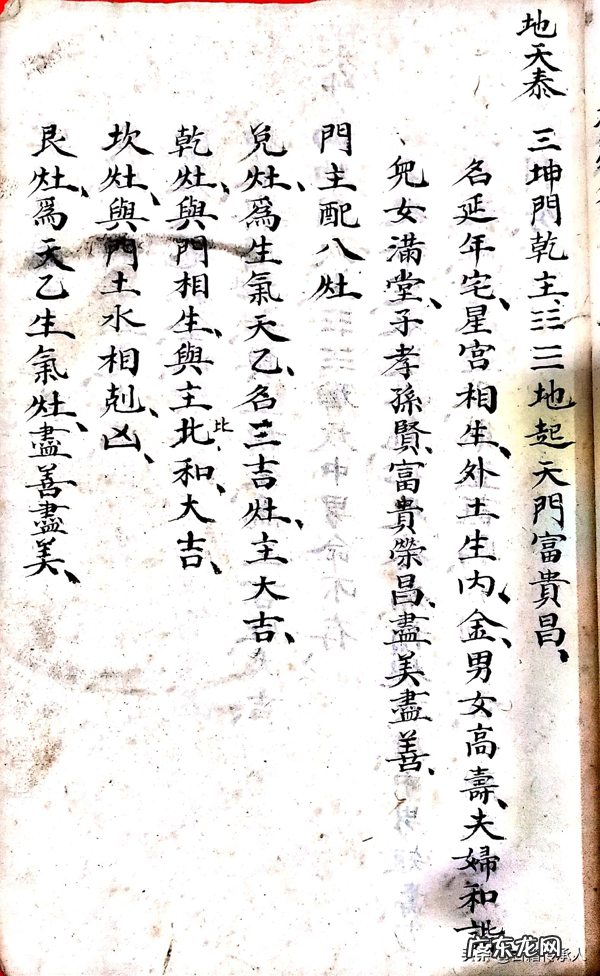 地天泰
三坤門乾主、☷☰地起天門富貴昌、
名延年宅、星宫相生、外土生内、金、男女高壽、夫婦和諧、
兒女滿堂、子孝孫賢、富貴榮昌、盡美盡善、
門主配八灶
兌灶、爲生氣天乙、名三吉灶、主大吉、
乾灶、與門相生、與主北和、大吉、
比
坎灶、與門土水相剋、凶、
艮灶、爲天乙生氣灶、盡善盡美、
广东龙网